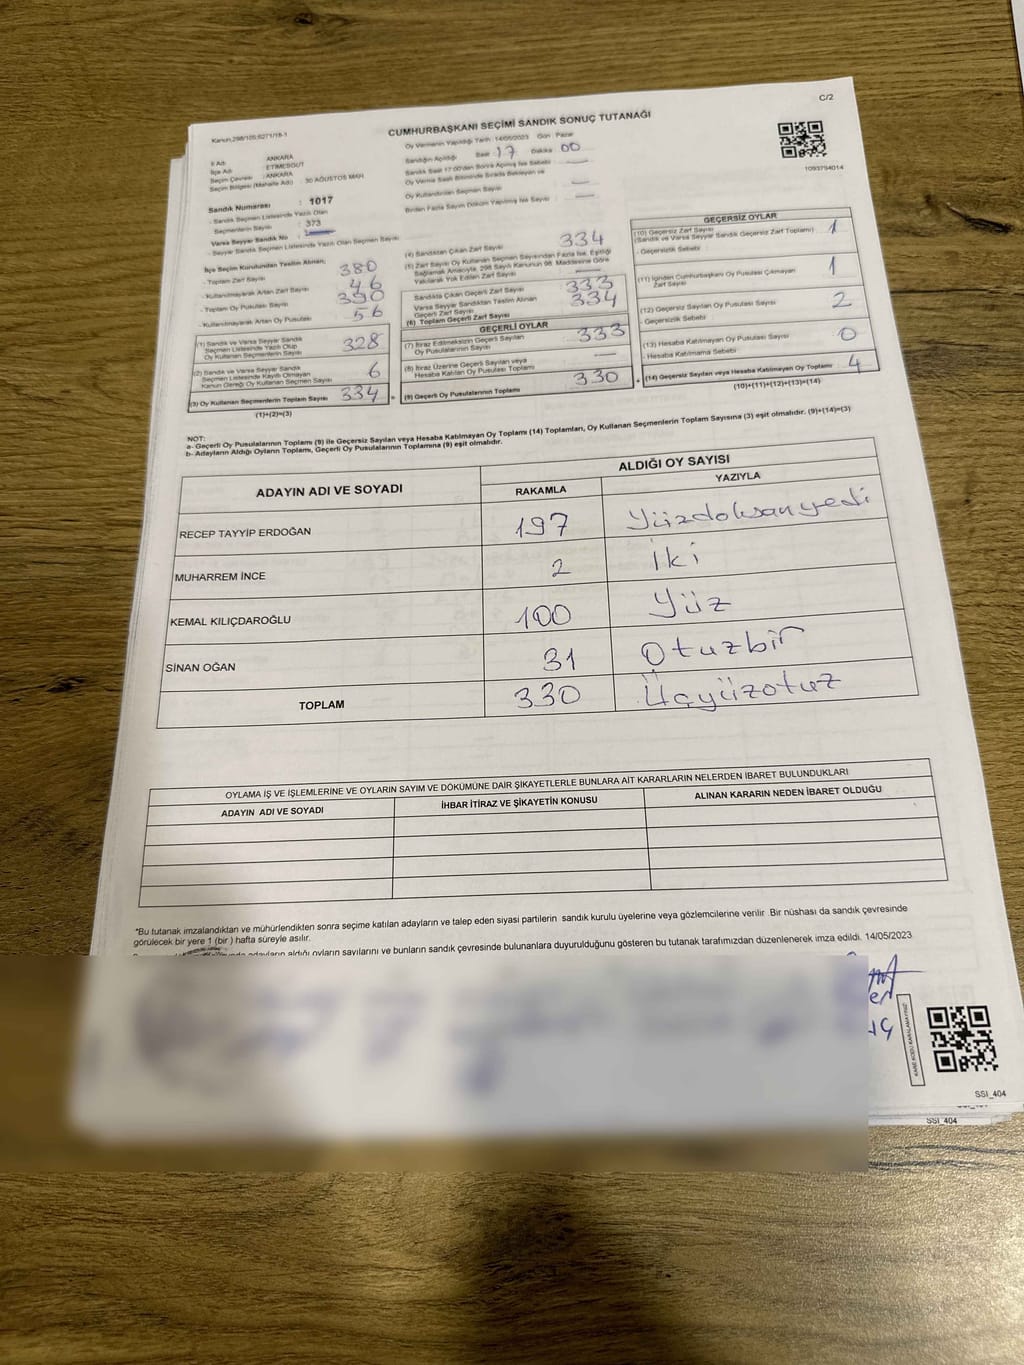 C/2
Kanun,298/105;6271/18-1
CUMHURBAŞKANI SEÇİMİ SANDIK SONUÇ TUTANAĞI
Oy Vermenin Yapıldığı Tarih: 14/05/2023 Gün : Pazar
Sandığın Açıldığı Saat : 17 Dakika 00
Sandık Saat 17:00'den Sonra Açılmış İse Sebebi
Oy Verme Saati Bitiminde Sırada Bekleyen ve
Oy Kullandırılan Seçmen Sayısı
Birden Fazla Sayım Döküm Yapılmış İse Sayısı
1093794014
İl Adı : ANKARA
İlçe Adı : ETİMESGUT
Seçim Çevresi : ANKARA
Seçim Bölgesi (Mahalle Adı) : 30 AĞUSTOS MAH.
Sandık Numarası : 1017
- Sandık Seçmen Listesinde Yazılı Olan
Seçmenlerin Sayısı : 373
Varsa Seyyar Sandık No
- Seyyar Sandık Seçmen Listesinde Yazılı Olan Seçmen Sayısı
İlçe Seçim Kurulundan Teslim Alınan;
- Toplam Zarf Sayısı 380
- Kullanılmayarak Artan Zarf Sayısı 46
- Toplam Oy Pusulası Sayısı 390
- Kullanılmayarak Artan Oy Pusulası 56
(1) Sandık ve Varsa Seyyar Sandık
Seçmen Listesinde Yazılı Olup
Oy Kullanan Seçmenlerin Sayısı 328
(2) Sandık ve Varsa Seyyar Sandık
Seçmen Listesinde Kayıtlı Olmayan
Kanun Gereği Oy Kullanan Seçmen Sayısı 6
(3) Oy Kullanan Seçmenlerin Toplam Sayısı 334 =
(1)+(2)=(3)
(4) Sandıktan Çıkan Zarf Sayısı 334
(5) Zarf Sayısı Oy Kullanan Seçmen Sayısından Fazla İse, Eşitliği
Sağlamak Amacıyla, 298 Sayılı Kanunun 98. Maddesine Göre
Yakılarak Yok Edilen Zarf Sayısı
Sandıkta Çıkan Geçerli Zarf Sayısı 333
Varsa Seyyar Sandıktan Teslim Alınan
Geçerli Zarf Sayısı
(6) Toplam Geçerli Zarf Sayısı 334
GEÇERLİ OYLAR
(7) İtiraz Edilmeksizin Geçerli Sayılan
Oy Pusulalarının Sayısı 333
(8) İtiraz Üzerine Geçerli Sayılan veya
Hesaba Katılan Oy Pusulası Toplamı
(9) Geçerli Oy Pusulalarının Toplamı 330 +
GEÇERSİZ OYLAR
(10) Geçersiz Zarf Sayısı
(Sandık ve Varsa Seyyar Sandık Geçersiz Zarf Toplamı) 1
- Geçersizlik Sebebi :
(11) İçinden Cumhurbaşkanı Oy Pusulası Çıkmayan
Zarf Sayısı 1
(12) Geçersiz Sayılan Oy Pusulası Sayısı 2
- Geçersizlik Sebebi :
(13) Hesaba Katılmayan Oy Pusulası Sayısı 0
- Hesaba Katılmama Sebebi :
(14) Geçersiz Sayılan veya Hesaba Katılmayan Oy Toplamı 4
(10)+(11)+(12)+(13)=(14)
NOT:
a- Geçerli Oy Pusulalarının Toplamı (9) ile Geçersiz Sayılan veya Hesaba Katılmayan Oy Toplamı (14) Toplamları, Oy Kullanan Seçmenlerin Toplam Sayısına (3) eşit olmalıdır. (9)+(14)=(3)
b- Adayların Aldığı Oyların Toplamı, Geçerli Oy Pusulalarının Toplamına (9) eşit olmalıdır.
ADAYIN ADI VE SOYADI
ALDIĞI OY SAYISI
RAKAMLA YAZIYLA
RECEP TAYYİP ERDOĞAN 197 Yüzdoksanyedi
MUHARREM İNCE 2 İki
KEMAL KILIÇDAROĞLU 100 Yüz
SİNAN OĞAN 31 Otuzbir
TOPLAM 330 Üçyüzotuz
OYLAMA İŞ VE İŞLEMLERİNE VE OYLARIN SAYIM VE DÖKÜMÜNE DAİR ŞİKAYETLERLE BUNLARA AİT KARARLARIN NELERDEN İBARET BULUNDUKLARI
ADAYIN ADI VE SOYADI İHBAR İTİRAZ VE ŞİKAYETİN KONUSU ALINAN KARARIN NEDEN İBARET OLDUĞU
*Bu tutanak imzalandıktan ve mühürlendikten sonra seçime katılan adayların ve talep eden siyasi partilerin sandık kurulu üyelerine veya gözlemcilerine verilir. Bir nüshası da sandık çevresinde
görülecek bir yere 1 (bir ) hafta süreyle asılır.
adayların aldığı oyların sayılarını ve bunların sandık çevresinde bulunanlara duyurulduğunu gösteren bu tutanak tarafımızdan düzenlenerek imza edildi. 14/05/2023
KARE KODU KARALAMAYINIZ
SSI_404
SSI_404